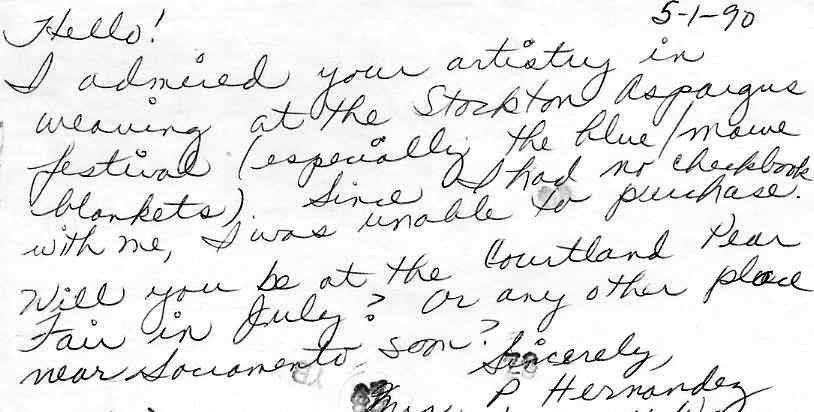 5-1-90
Hello!
I admired your artistry in
weaving at the Stockton Asparagus
festival (especially the blue/mauve
blankets). Since I had no checkbook
with me, I was unable to purchase.
Will you be at the Courtland Pear
Fair in July? Or any other place
near Sacramento soon?
Sincerely,
P Hernandez